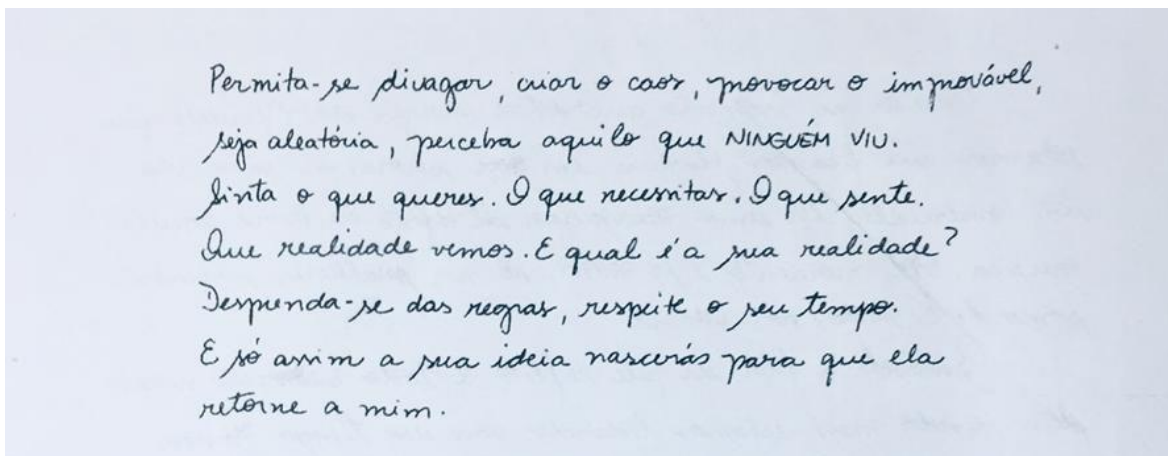 Permita-se divagar, criar o caos, provocar o improvável,
seja aleatória, perceba aquilo que NINGUÉM VIU.
Sinta o que queres. O que necessitas. O que sente.
Que realidade vemos. E qual é a sua realidade?
Desprenda-se das regras, respeite o seu tempo.
E só assim a sua ideia nascerás para que ela
retorne a mim.